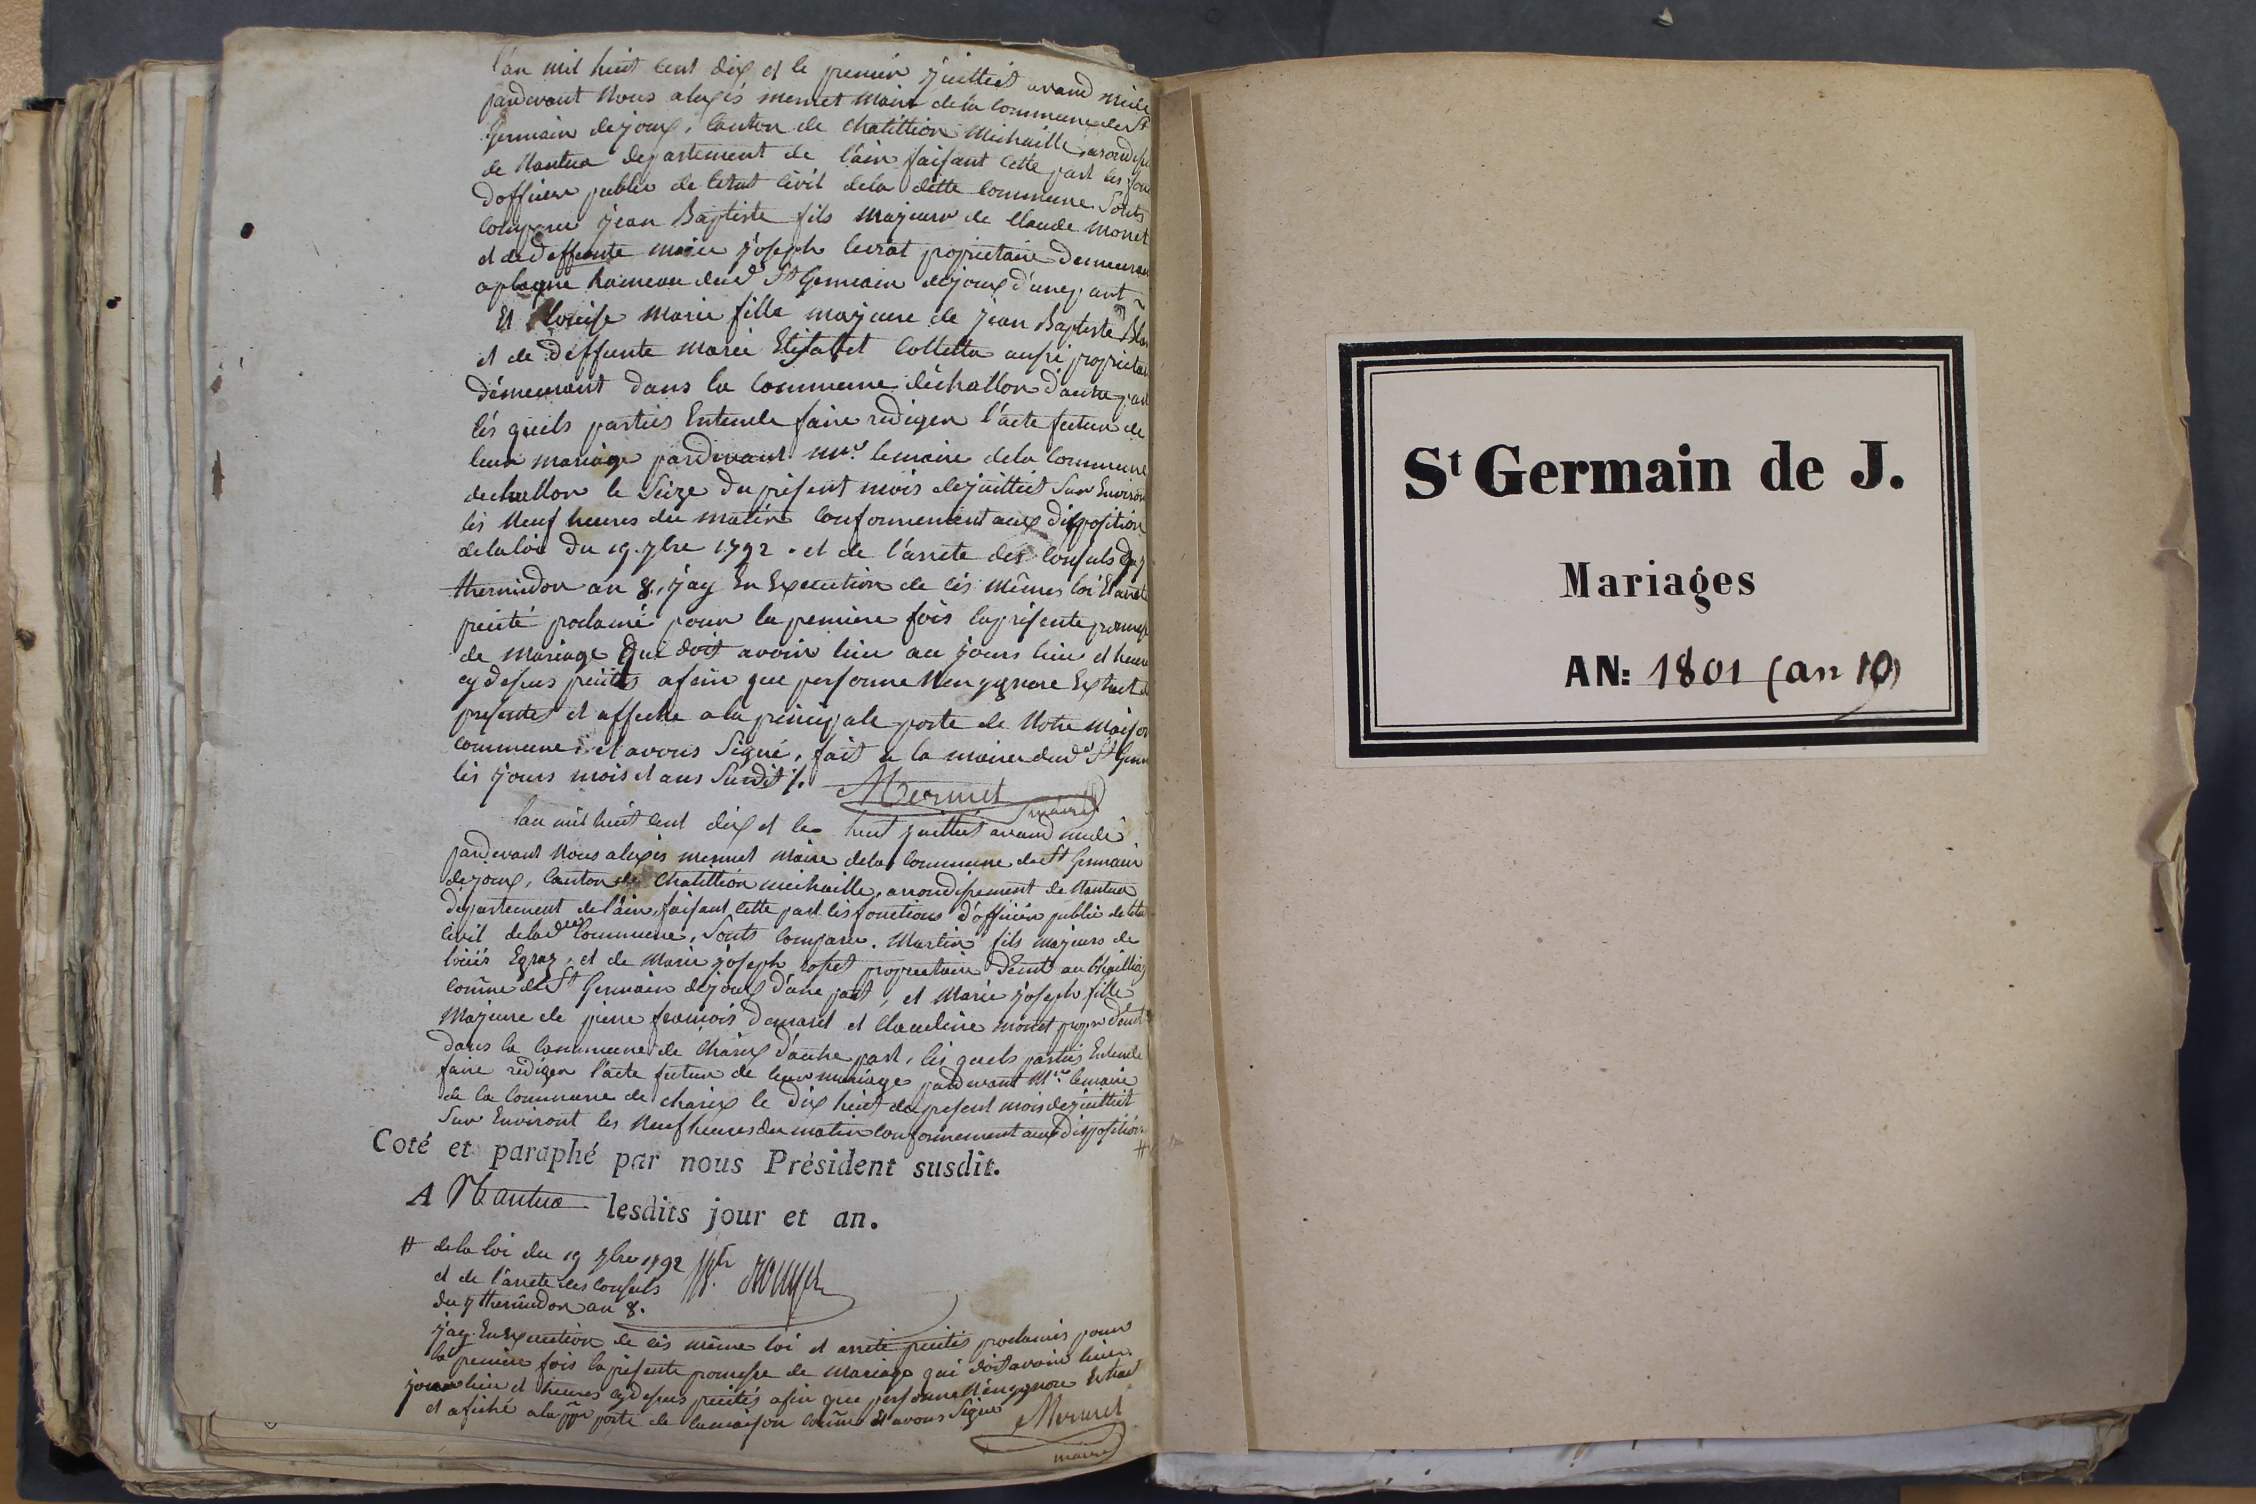 l'an mil huit cent dix et le premier juilliet avand midi
pardevant Nous alexis mermet Maire de la commune de St
Germain dejoux, Canton de Chatillion Michaille, arondisse
de Nantua departement de l'ain faisant cette part les fon
d'officier public de letat civil dela ditte commune Sonts
Comparu jean Baptiste fils majeur de Claude monet
et de deffeunte marie joseph levrat proprietaire Demeurant
a plagne hameau dud St Germain dejoux d'une part
Et Louise Marie fille majeure de jean Baptiste Blan
et de deffunte marie Elisabet Colletta aussi proprietai
démeurant dans la Commune déchallon d'autre part
lés quels parties Entende faire rediger l'acte futur de
leur mariage pardevant Mr. lemaire dela Commune
dechallon le Seize du présent mois de juilliet Sur Environ
lés Neuf heures du matin Conformement aux disposition
de la loi du 19. 7bre 1792. et de l'arrete des Consuls du 7
thermidor an 8., j'ay En Execution de cés mêmes loi Et arrete
precité proclamé pour la premiere fois la présente promess
de Mariage qui doit avoir lieu au jours lieu et heure
cy dessus précités afein que personne N'en ygnore Extrait d
présentes et affiche a la principale porte de Notre Maison
commune, et avons Signé, fait a la mairie dud St Germ
les jours mois et ans Susdit /. Mermet
maire
l'an mil huit cent dix et les huit juilliet avand midi
pardevant Nous alexis mermet Maire dela Commune de St Germain
dejoux, Canton de Chatillion michaille, arrondissement de Nantua
departement de l'ain, faisant cette part les fonctions d'officier public de leta
civil de lad. Commune, Sonts Comparu. Martin fils majeurs de
loüis Egraz, et de Marie joseph rosset proprietaire Demt au
Comûne de St Germain dejoux d'une part, et Marie joseph fille
Majeure de pierre francois Demaret et Claudine monet propre demt
dans la Commune de Charix d'autre part, lés quels parties Entende
faire redigéer l'acte futur de leur mariage pardevant Mr. lemaire
de la Commune de charix le Dix huit du present mois de juilliet
Sur Environt les Neuf heures du matin Conformement aux disposition
#
Coté et paraphé par nous Président susdit.
A Nantua lesdits jour et an.
# de la loi du 19 7bre 1792
et de l'arrete des Consuls
du 7 thermidor an 8.
j'ay En Execution de cés même loi et arrete précités proclamés pour
la premiere fois la présente promesse de Mariage qui doit avoir lieu
jour lieu et heures cy dessus precités afin que personne N'en ygnore Extrait
et afiché a la ppe porte de la maison Comûne et avons Signé Mermet
maire
St Germain de J.
Mariages
AN: 1801 (an 10)